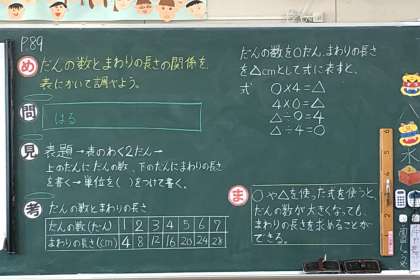 P89
め だんの数とまわりの長さの関係を
表にかいて調べよう。
問
はる
見 表題→表のわく2だん→
上のだんにだんの数、下のだんにまわりの長さ
を書く→単位を( )をつけて書く。
考 だんの数とまわりの長さ
だんの数(だん) 1 2 3 4 5 6 7
まわりの長さ(cm) 4 8 12 16 20 24 28
だんの数を○だん、まわりの長さ
を△cmとして式に表すと、
式 ○×4=△
4×○=△
△÷○=4
△÷4=○
ま ○や△を使った式を使うと、
だんの数が大きくなっても、
まわりの長さを求めることが
できる。